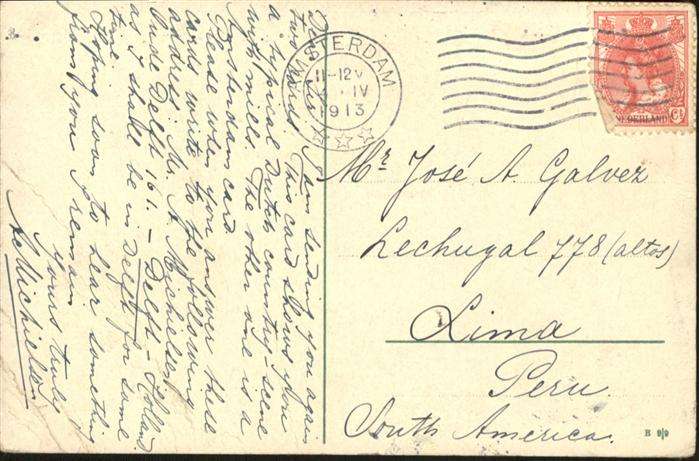 Dear Sir, I am sending you again
two cards. This card shows you
a typical Dutch country scene
with mills. The other one is a
Amsterdam card.
Please when you answer these
cards write to the following
address: Mr. A. Michielsen
Oude Delft 161. – Delft – Holland
as I shall be in Delft for some
time.
Hoping soon to hear something
from you I remain
Yours truly
A. Michielsen
AMSTERDAM
11-12V
IV
1913
NEDERLAND
Ct
Mr. José A. Galvez
Lechugal 778 (altos)
Lima
Peru.
South America.
B 9/9